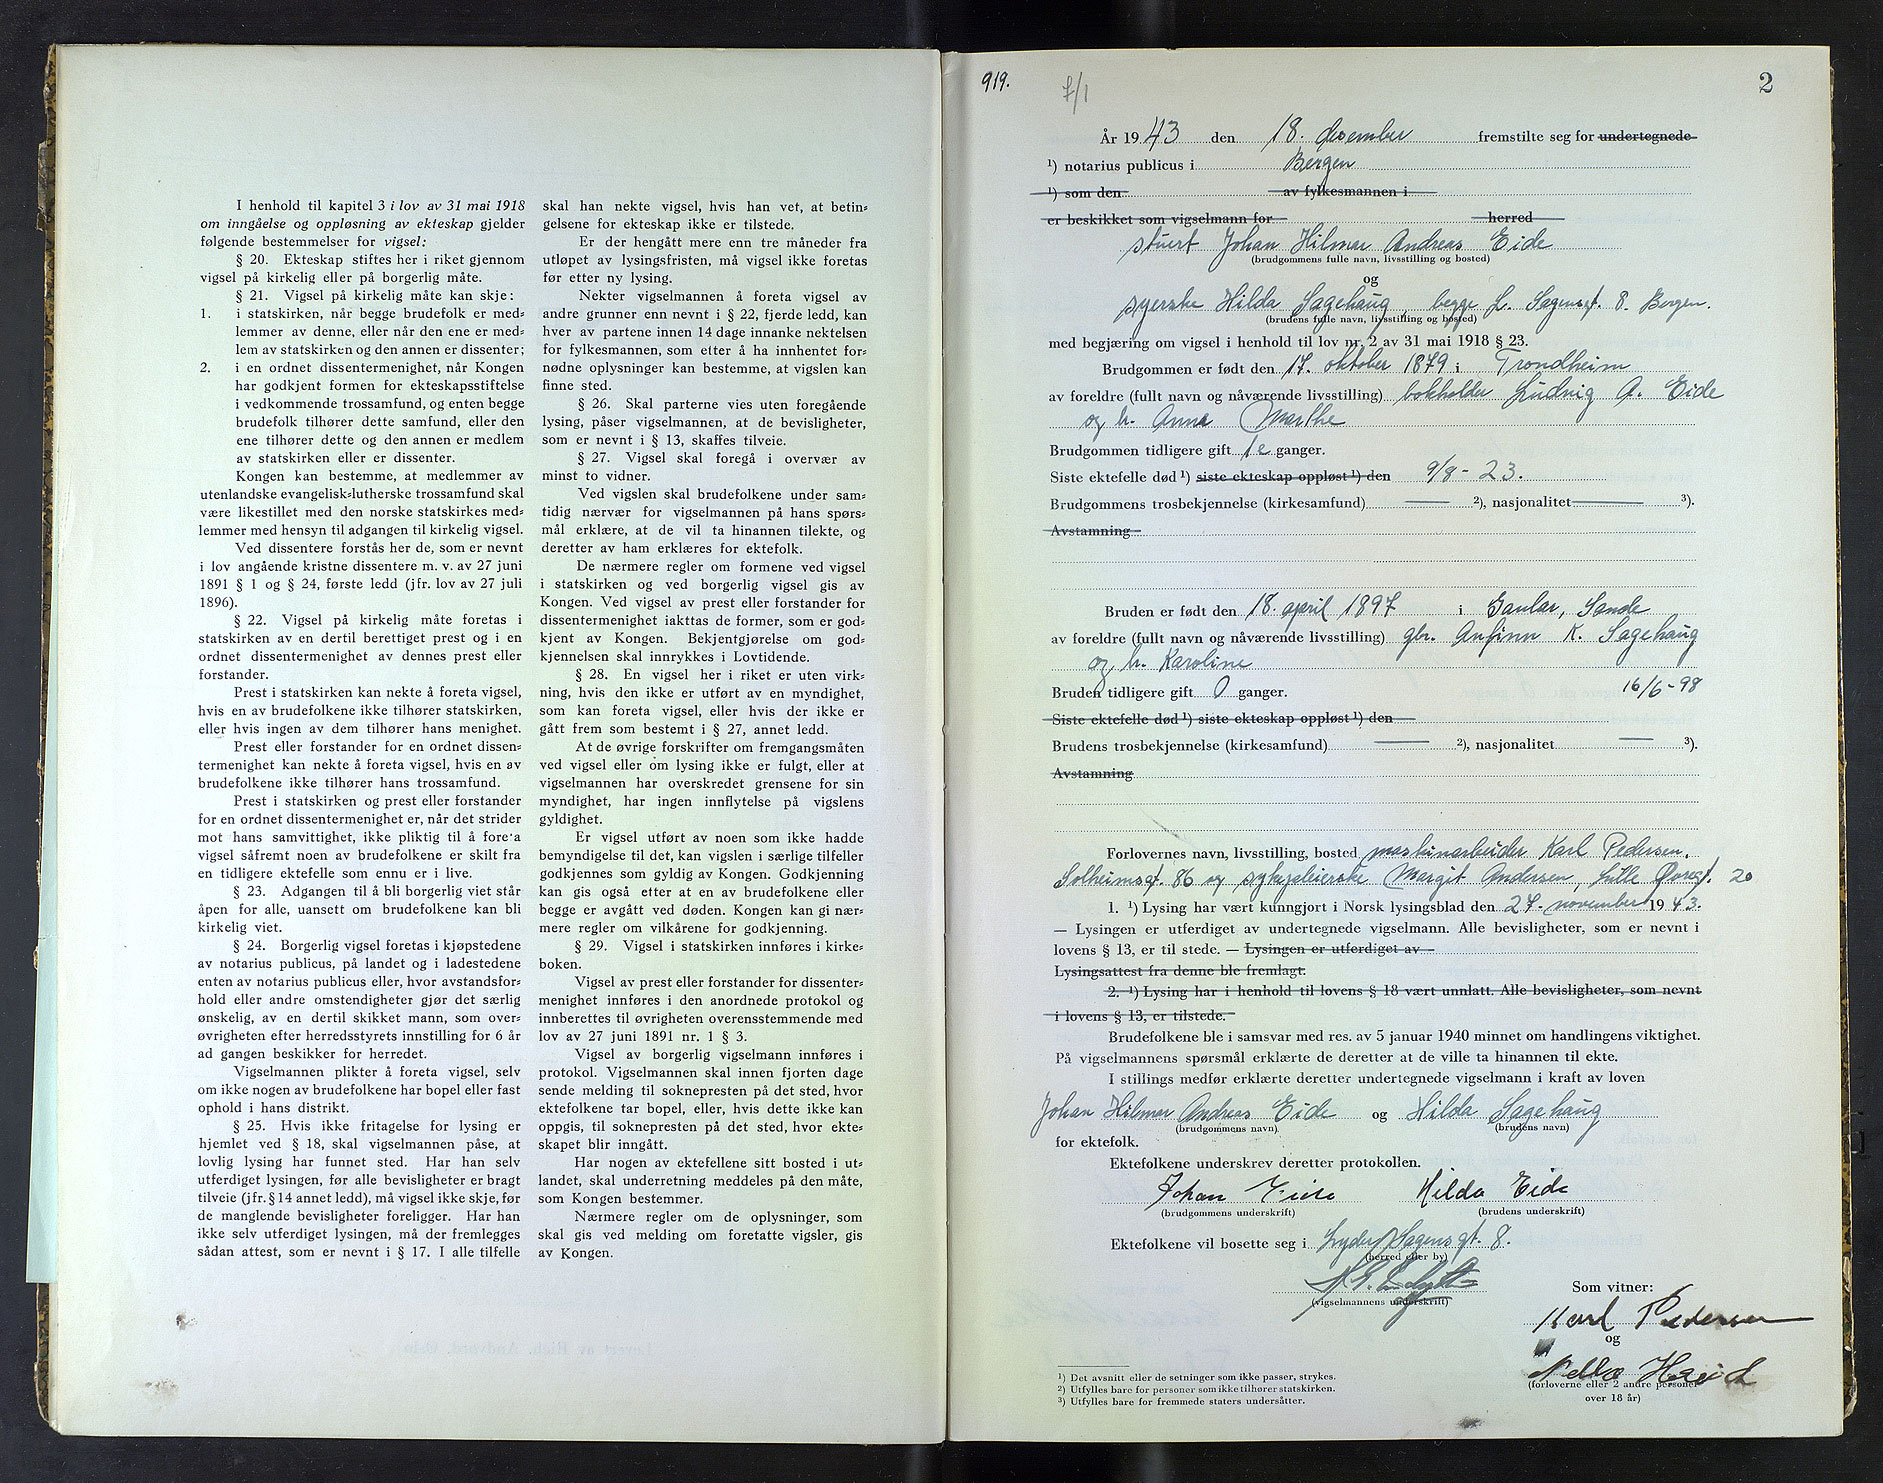 I henhold til kapitel 3 i lov av 31 mai 1918
om inngåelse og oppløsning av ekteskap gjelder
følgende bestemmelser for vigsel:
§ 20. Ekteskap stiftes her i riket gjennom
vigsel på kirkelig eller på borgerlig måte.
§ 21. Vigsel på kirkelig måte kan skje:
1. i statskirken, når begge brudefolk er med=
lemmer av denne, eller når den ene er med=
lem av statskirken og den annen er dissenter;
2. i en ordnet dissentermenighet, når Kongen
har godkjent formen for ekteskapsstiftelse
i vedkommende trossamfund, og enten begge
brudefolk tilhører dette samfund, eller den
ene tilhører dette og den annen er medlem
av statskirken eller er dissenter.
Kongen kan bestemme, at medlemmer av
utenlandske evangelisk=lutherske trossamfund skal
være likestillet med den norske statskirkes med=
lemmer med hensyn til adgangen til kirkelig vigsel.
Ved dissentere forstås her de, som er nevnt
i lov angående kristne dissentere m. v. av 27 juni
1891 § 1 og § 24, første ledd (jfr. lov av 27 juli
1896).
§ 22. Vigsel på kirkelig måte foretas i
statskirken av en dertil berettiget prest og i en
ordnet dissentermenighet av dennes prest eller
forstander.
Prest i statskirken kan nekte å foreta vigsel,
hvis en av brudefolkene ikke tilhører statskirken,
eller hvis ingen av dem tilhører hans menighet.
Prest eller forstander for en ordnet dissen=
termenighet kan nekte å foreta vigsel, hvis en av
brudefolkene ikke tilhører hans trossamfund.
Prest i statskirken og prest eller forstander
for en ordnet dissentermenighet er, når det strider
mot hans samvittighet, ikke pliktig til å foreta
vigsel såfremt noen av brudefolkene er skilt fra
en tidligere ektefelle som ennu er i live.
§ 23. Adgangen til å bli borgerlig viet står
åpen for alle, uansett om brudefolkene kan bli
kirkelig viet.
§ 24. Borgerlig vigsel foretas i kjøpstedene
av notarius publicus, på landet og i ladestedene
enten av notarius publicus eller, hvor avstandsfor=
hold eller andre omstendigheter gjør det særlig
ønskelig, av en dertil skikket mann, som over=
øvrigheten efter herredsstyrets innstilling for 6 år
ad gangen beskikker for herredet.
Vigselmannen plikter å foreta vigsel, selv
om ikke nogen av brudefolkene har bopel eller fast
ophold i hans distrikt.
§ 25. Hvis ikke fritagelse for lysing er
hjemlet ved § 18, skal vigselmannen påse, at
lovlig lysing har funnet sted. Har han selv
utferdiget lysingen, før alle bevisligheter er bragt
tilveie (jfr. § 14 annet ledd), må vigsel ikke skje, før
de manglende bevisligheter foreligger. Har han
ikke selv utferdiget lysingen, må der fremlegges
sådan attest, som er nevnt i § 17. I alle tilfelle
skal han nekte vigsel, hvis han vet, at betin=
gelsene for ekteskap ikke er tilstede.
Er der hengått mere enn tre måneder fra
utløpet av lysingsfristen, må vigsel ikke foretas
før etter ny lysing.
Nekter vigselmannen å foreta vigsel av
andre grunner enn nevnt i § 22, fjerde ledd, kan
hver av partene innen 14 dage innanke nektelsen
for fylkesmannen, som efter å ha innhentet for=
nødne oplysninger kan bestemme, at vigslen kan
finne sted.
§ 26. Skal parterne vies uten foregående
lysing, påser vigselmannen, at de bevisligheter,
som er nevnt i § 13, skaffes tilveie.
§ 27. Vigsel skal foregå i overvær av
minst to vidner.
Ved vigslen skal brudefolkene under sam=
tidig nærvær for vigselmannen på hans spørs=
mål erklære, at de vil ta hinannen tilekte, og
deretter av ham erklæres for ektefolk.
De nærmere regler om formene ved vigsel
i statskirken og ved borgerlig vigsel gis av
Kongen. Ved vigsel av prest eller forstander for
dissentermenighet iakttas de former, som er god=
kjent av Kongen. Bekjentgjørelse om god=
kjennelsen skal innrykkes i Lovtidende.
§ 28. En vigsel her i riket er uten virk=
ning, hvis den ikke er utført av en myndighet,
som kan foreta vigsel, eller hvis der ikke er
gått frem som bestemt i § 27, annet ledd.
At de øvrige forskrifter om fremgangsmåten
ved vigsel eller om lysing ikke er fulgt, eller at
vigselmannen har overskredet grensene for sin
myndighet, har ingen innflytelse på vigslens
gyldighet.
Er vigsel utført av noen som ikke hadde
bemyndigelse til det, kan vigslen i særlige tilfeller
godkjennes som gyldig av Kongen. Godkjenning
kan gis også efter at en av brudefolkene eller
begge er avgått ved døden. Kongen kan gi nær=
mere regler om vilkårene for godkjenning.
§ 29. Vigsel i statskirken innføres i kirke=
boken.
Vigsel av prest eller forstander for dissenter=
menighet innføres i den anordnede protokol og
innberettes til øvrigheten overensstemmende med
lov av 27 juni 1891 nr. 1 § 3.
Vigsel av borgerlig vigselmann innføres i
protokol. Vigselmannen skal innen fjorten dage
sende melding til soknepresten på det sted, hvor
ektefolkene tar bopel, eller, hvis dette ikke kan
oppgis, til soknepresten på det sted, hvor ekte=
skapet blir inngått.
Har nogen av ektefellene sitt bosted i ut=
landet, skal underretning meddeles på den måte,
som Kongen bestemmer.
Nærmere regler om de oplysninger, som
skal gis ved melding om foretatte vigsler, gis
av Kongen.
919. 7/1 2
År 1943 den 18. desember fremstilte seg for undertegnede
¹) notarius publicus i Bergen
¹) som den av fylkesmannen i
er beskikket som vigselmann for herred
stuert Johan Hilmar Andreas Eide
(brudgommens fulle navn, livsstilling og bosted)
og
syerske Hilda Sagehaug, begge L. Sagensgt. 8. Bergen.
(brudens fulle navn, livsstilling og bosted)
med begjæring om vigsel i henhold til lov nr. 2 av 31 mai 1918 § 23.
Brudgommen er født den 17. oktober 1879 i Trondheim
av foreldre (fullt navn og nåværende livsstilling) bokholder Ludvig A. Eide
og h. Anna Marthe
Brudgommen tidligere gift 1e ganger.
Siste ektefelle død ¹) siste ekteskap oppløst ¹) den 9/8 - 23.
Brudgommens trosbekjennelse (kirkesamfund) — ²), nasjonalitet — ³).
Avstamning
Bruden er født den 18. april 1897 i Gaular, Sande
av foreldre (fullt navn og nåværende livsstilling) gbr. Anfinn K. Sagehaug
og h. Karoline
Bruden tidligere gift 0 ganger. 16/6 - 98
Siste ektefelle død ¹) siste ekteskap oppløst ¹) den
Brudens trosbekjennelse (kirkesamfund) — ²), nasjonalitet — ³).
Avstamning
Forlovernes navn, livsstilling, bosted maskinarbeider Karl Pedersen,
Solheimsgt. 86 og sykepleierske Margit Andersen, Lille Øvregt. 20
1. ¹) Lysing har vært kunngjort i Norsk lysingsblad den 27. november 1943.
— Lysingen er utferdiget av undertegnede vigselmann. Alle bevisligheter, som er nevnt i
lovens § 13, er til stede. — Lysingen er utferdiget av
Lysingsattest fra denne ble fremlagt.
2. ¹) Lysing har i henhold til lovens § 18 vært unnlatt. Alle bevisligheter, som nevnt
i lovens § 13, er tilstede.
Brudefolkene ble i samsvar med res. av 5 januar 1940 minnet om handlingens viktighet.
På vigselmannens spørsmål erklærte de deretter at de ville ta hinannen til ekte.
I stillings medfør erklærte deretter undertegnede vigselmann i kraft av loven
Johan Hilmar Andreas Eide og Hilda Sagehaug
(brudgommens navn) (brudens navn)
for ektefolk.
Ektefolkene underskrev deretter protokollen.
Johan Eide Hilda Eide
(brudgommens underskrift) (brudens underskrift)
Ektefolkene vil bosette seg i Lyder Sagensgt. 8.
(herred eller by)
(vigselmannens underskrift)
Som vitner:
Karl Pedersen
og
(forloverne eller 2 andre personer
over 18 år)
¹) Det avsnitt eller de setninger som ikke passer, strykes.
²) Utfylles bare for personer som ikke tilhører statskirken.
³) Utfylles bare for fremmede staters undersåtter.